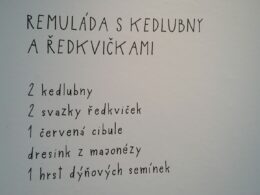 REMULÁDA S KEDLUBNY
A ŘEDKVIČKAMI
2 kedlubny
2 svazky ředkviček
1 červená cibule
dresink z majonézy
1 hrst dýňových semínek